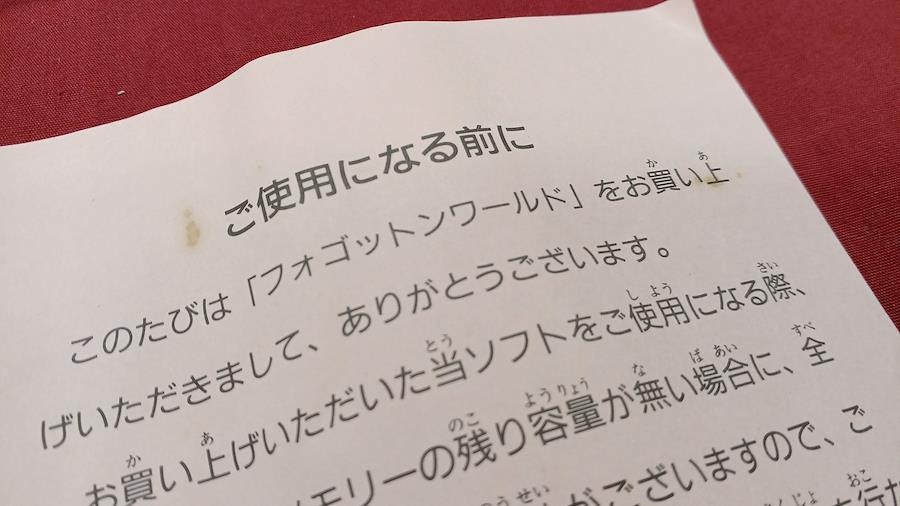 ご使用になる前に
このたびは「フォゴットンワールド」をお買い上
げいただきまして、ありがとうございます。
お買い上げいただいた当ソフトをご使用になる際、
メモリーの残り容量が無い場合に、全
がございますので、ご